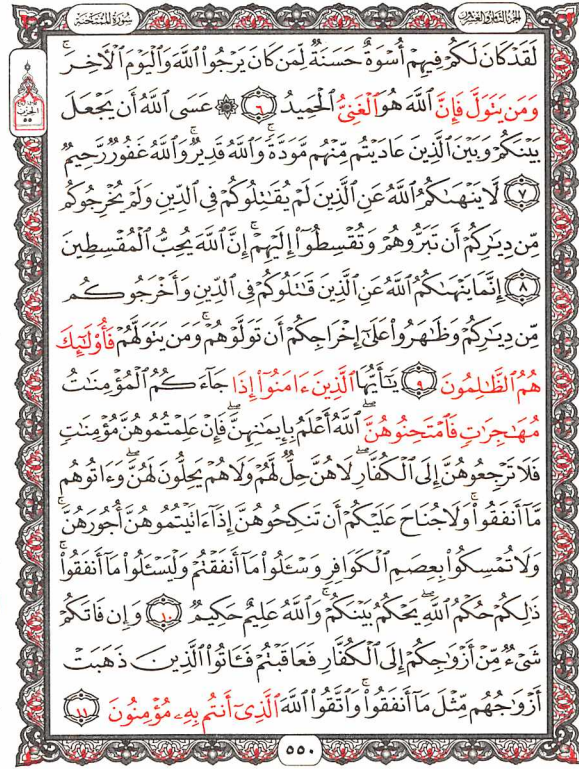 الجزء الثامن والعشرون
سورة الممتحنة
لَقَدْ كَانَ لَكُمْ فِيهِمْ أُسْوَةٌ حَسَنَةٌ لِّمَن كَانَ يَرْجُوا۟ ٱللَّهَ وَٱلْيَوْمَ ٱلْآخِرَ ۚ
وَمَن يَتَوَلَّ فَإِنَّ ٱللَّهَ هُوَ ٱلْغَنِىُّ ٱلْحَمِيدُ ٦ ۞ عَسَى ٱللَّهُ أَن يَجْعَلَ
بَيْنَكُمْ وَبَيْنَ ٱلَّذِينَ عَادَيْتُم مِّنْهُم مَّوَدَّةً ۚ وَٱللَّهُ قَدِيرٌ ۚ وَٱللَّهُ غَفُورٌ رَّحِيمٌ
٧ لَّا يَنْهَىٰكُمُ ٱللَّهُ عَنِ ٱلَّذِينَ لَمْ يُقَٰتِلُوكُمْ فِى ٱلدِّينِ وَلَمْ يُخْرِجُوكُم
مِّن دِيَٰرِكُمْ أَن تَبَرُّوهُمْ وَتُقْسِطُوٓا۟ إِلَيْهِمْ ۚ إِنَّ ٱللَّهَ يُحِبُّ ٱلْمُقْسِطِينَ
٨ إِنَّمَا يَنْهَىٰكُمُ ٱللَّهُ عَنِ ٱلَّذِينَ قَٰتَلُوكُمْ فِى ٱلدِّينِ وَأَخْرَجُوكُم
مِّن دِيَٰرِكُمْ وَظَٰهَرُوا۟ عَلَىٰٓ إِخْرَاجِكُمْ أَن تَوَلَّوْهُمْ ۚ وَمَن يَتَوَلَّهُمْ فَأُو۟لَٰٓئِكَ
هُمُ ٱلظَّٰلِمُونَ ٩ يَٰٓأَيُّهَا ٱلَّذِينَ ءَامَنُوٓا۟ إِذَا جَآءَكُمُ ٱلْمُؤْمِنَٰتُ
مُهَٰجِرَٰتٍ فَٱمْتَحِنُوهُنَّ ۖ ٱللَّهُ أَعْلَمُ بِإِيمَٰنِهِنَّ ۖ فَإِنْ عَلِمْتُمُوهُنَّ مُؤْمِنَٰتٍ
فَلَا تَرْجِعُوهُنَّ إِلَى ٱلْكُفَّارِ ۖ لَا هُنَّ حِلٌّ لَّهُمْ وَلَا هُمْ يَحِلُّونَ لَهُنَّ ۖ وَءَاتُوهُم
مَّآ أَنفَقُوا۟ ۚ وَلَا جُنَاحَ عَلَيْكُمْ أَن تَنكِحُوهُنَّ إِذَآ ءَاتَيْتُمُوهُنَّ أُجُورَهُنَّ ۚ
وَلَا تُمْسِكُوا۟ بِعِصَمِ ٱلْكَوَافِرِ وَسْـَٔلُوا۟ مَآ أَنفَقْتُمْ وَلْيَسْـَٔلُوا۟ مَآ أَنفَقُوا۟ ۚ
ذَٰلِكُمْ حُكْمُ ٱللَّهِ ۖ يَحْكُمُ بَيْنَكُمْ ۚ وَٱللَّهُ عَلِيمٌ حَكِيمٌ ١٠ وَإِن فَاتَكُمْ
شَىْءٌ مِّنْ أَزْوَٰجِكُمْ إِلَى ٱلْكُفَّارِ فَعَاقَبْتُمْ فَـَٔاتُوا۟ ٱلَّذِينَ ذَهَبَتْ
أَزْوَٰجُهُم مِّثْلَ مَآ أَنفَقُوا۟ ۚ وَٱتَّقُوا۟ ٱللَّهَ ٱلَّذِىٓ أَنتُم بِهِۦ مُؤْمِنُونَ ١١
٥٥٠